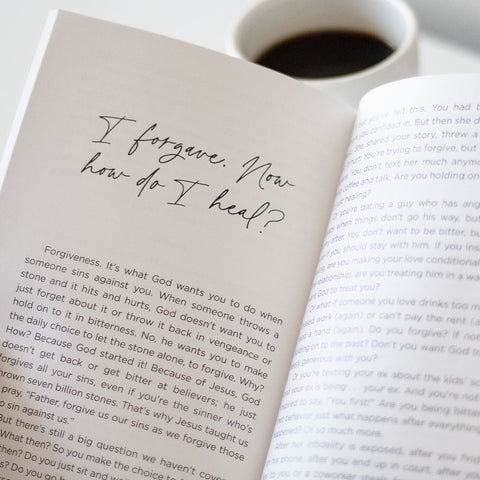 I forgave. Now
how do I heal?
Forgiveness. It's what God wants you to do when
someone sins against you. When someone throws a
stone and it hits and hurts, God doesn't want you to
just forget about it or throw it back in vengeance or
hold on to it in bitterness. No, he wants you to make
the daily choice to let the stone alone, to forgive. Why?
How? Because God started it! Because of Jesus, God
doesn't get back or get bitter at believers; he just
forgives all your sins, even if you're the sinner who's
thrown seven billion stones. That's why Jesus taught us
pray, "Father, forgive us our sins as we forgive those
o sin against us."
But there's still a big question we haven't cover
What then? So you make the choice to f
then? Do you just sit and w
s? Do you go b
felt this. You had t
you confided in. But then she d
She shared your story, threw a
hurt. You're trying to forgive, but
You don't text her much anymo
coffee and talk. Are you holding on
healing?
Or you're dating a guy who has ang
when things don't go his way, but
after. You don't want to be bitter, bu
if you should stay with him. If you ins
are you making your love conditional
relationship, are you treating him in a wa
God to treat you?
Or what if someone you love drinks too m
work (again) or can't pay the rent (a
a hand (again). Do you forgive? If not
on to the past? Don't you want God to
generous with you?
Or you're texting your ex about the kids' sc
ex is being . . . your ex. And you're not
to say, "You first!" Are you being bitter
behavior just what happens after everything
Or so much more.
After her infidelity is exposed, after you find
phone, after you end up in court, after you
to you or a coworker steals f